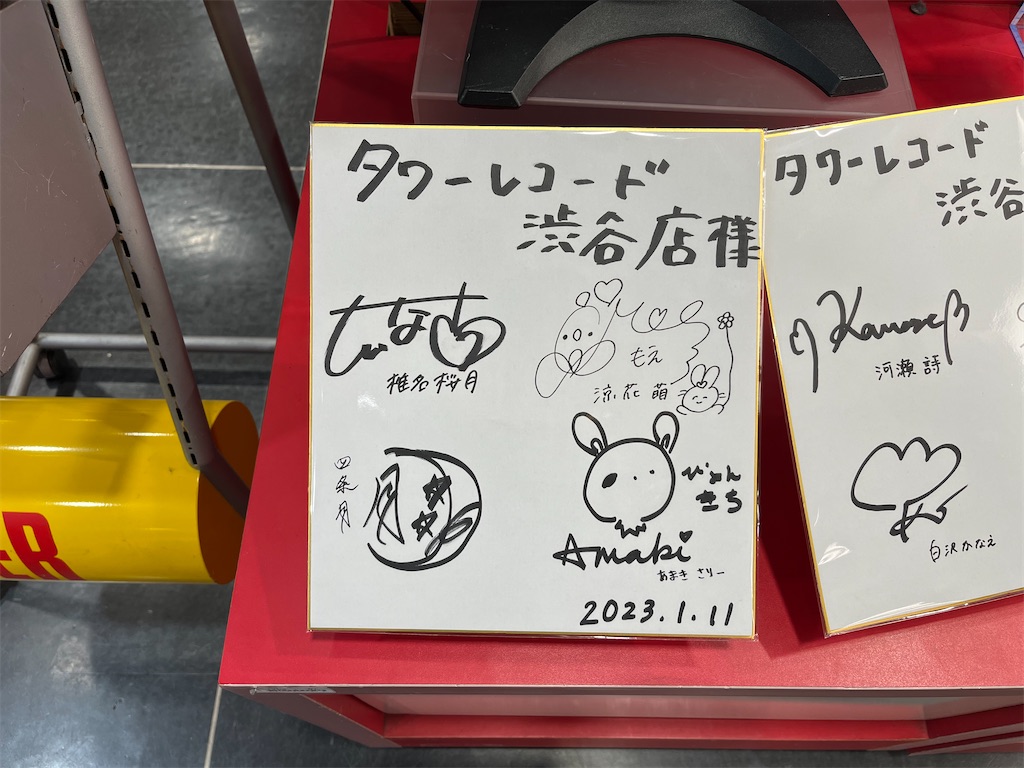 タワーレコード
渋谷店様
椎名桜月
もえ
涼花萌
四条月
月
びょん
きち
Amaki
あまき さりー
2023.1.11
タワーレコード
渋谷
Kawase
河瀬詩
白沢かなえ
ER